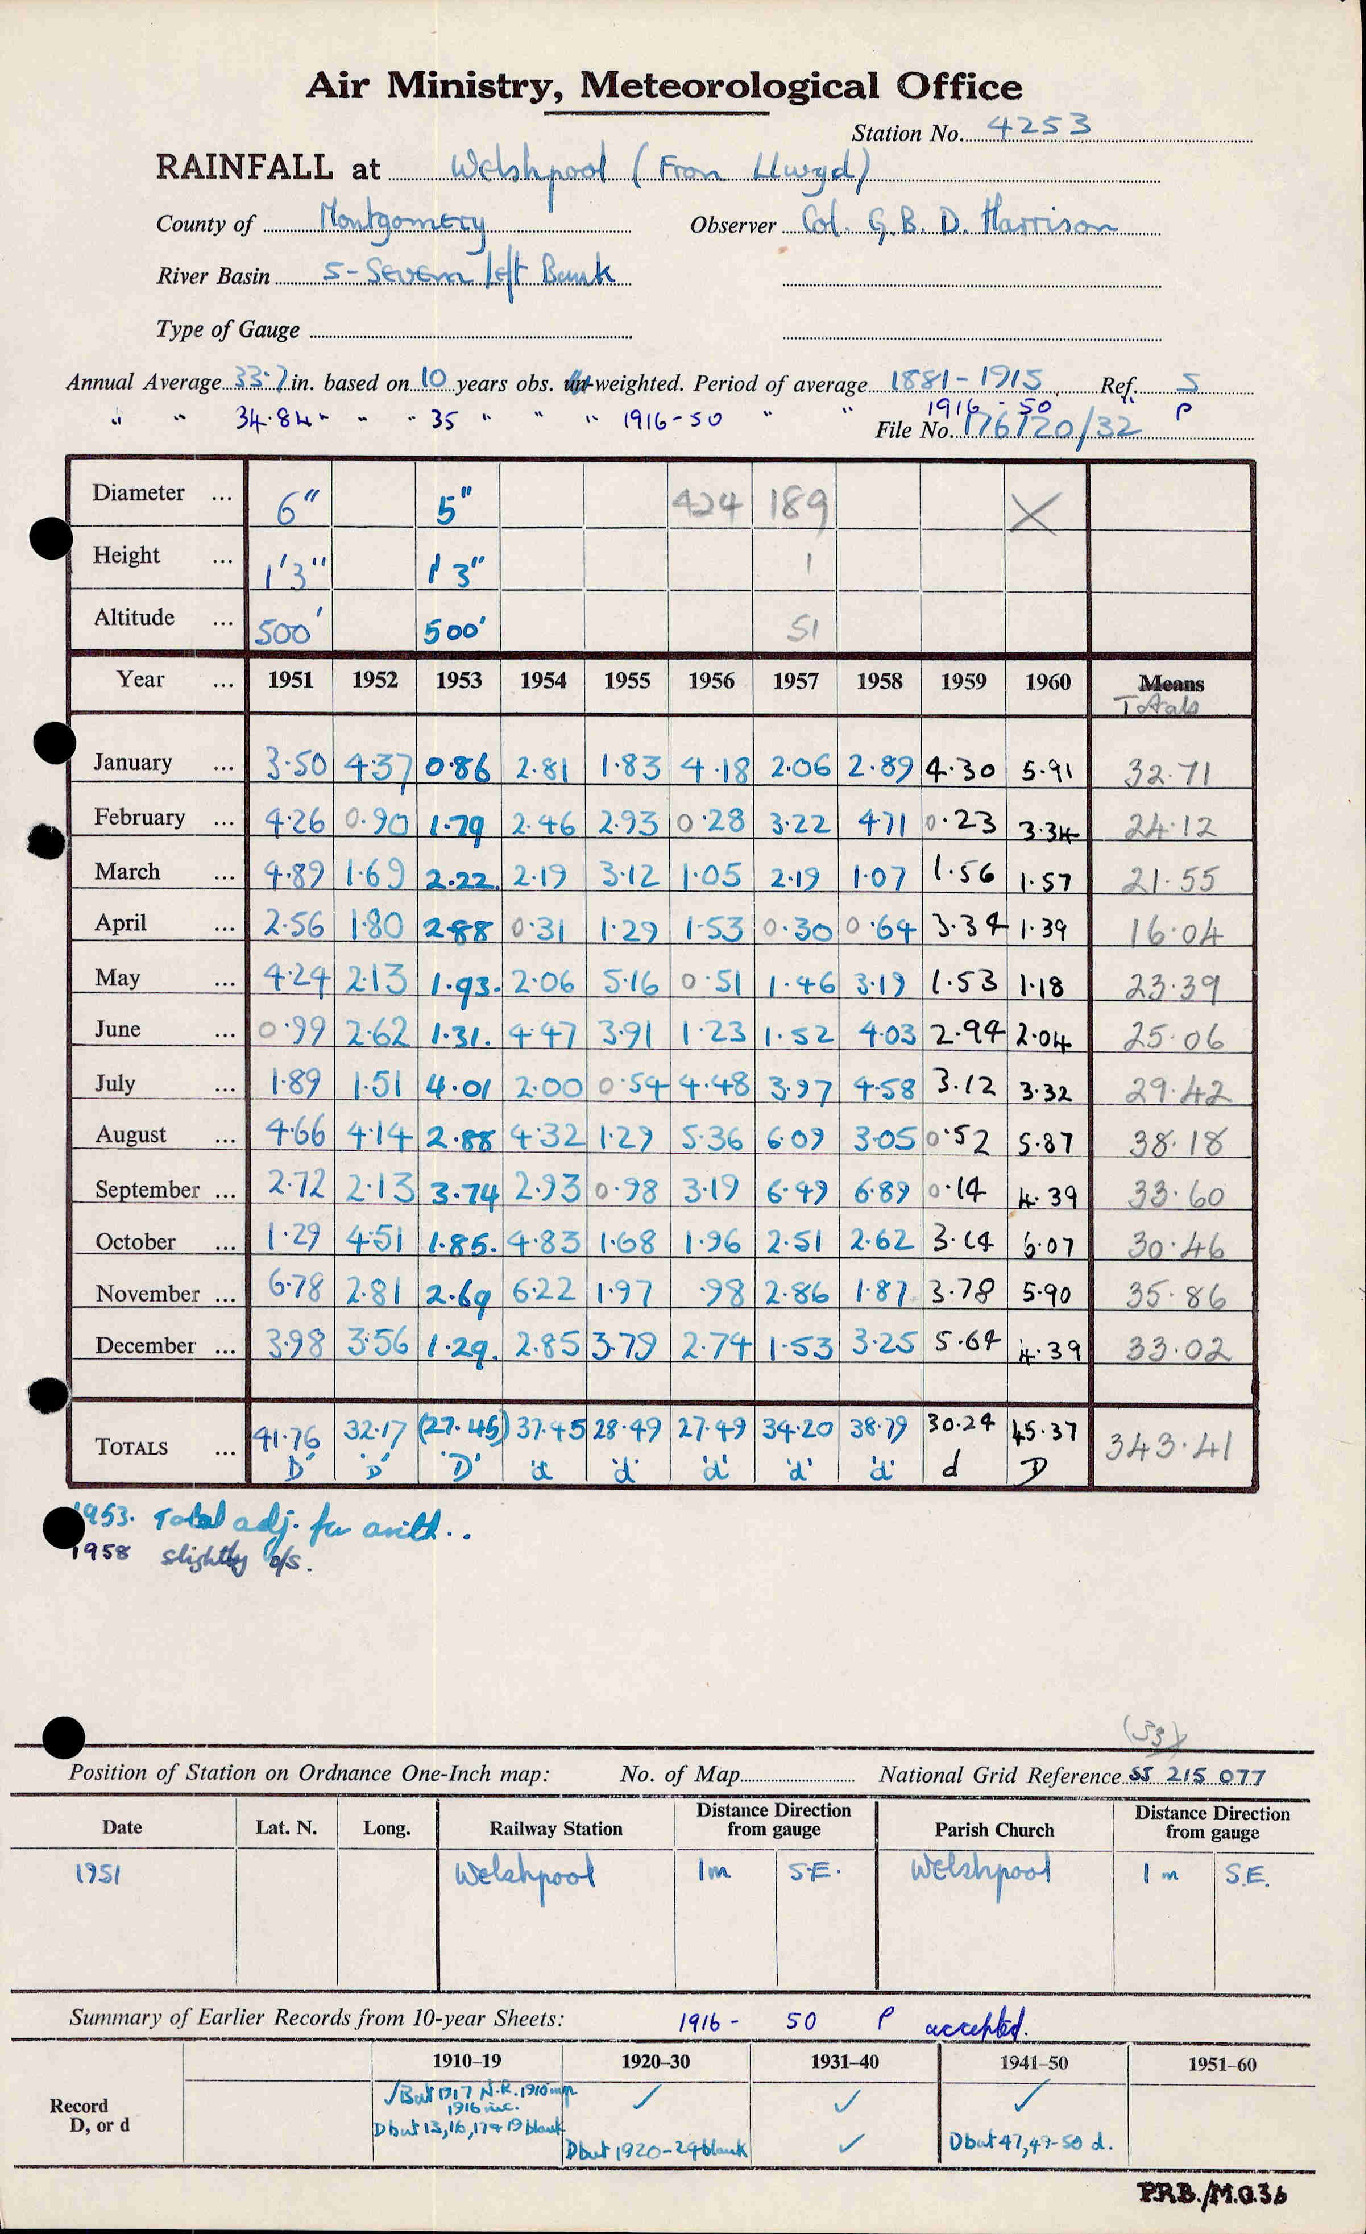 Air Ministry, Meteorological Office
Station No. 4253
RAINFALL at Welshpool (Fron Llwyd)
County of Montgomery Observer Col. G. B. D. Harrison
River Basin 5-Severn Left Bank
Type of Gauge
Annual Average 33.7 in. based on 10 years obs. weighted. Period of average 1881-1915 Ref. S
" " 34.84 " " " 35 " " " 1916-50 " " 1916-50 " P
File No. 176120/32
Diameter ... 6" 5" 424 189 X
Height ... 1'3" 1'3" 1
Altitude ... 500' 500' 51
Year ... 1951 1952 1953 1954 1955 1956 1957 1958 1959 1960 Means
Totals
January ... 3.50 4.37 0.86 2.81 1.83 4.18 2.06 2.89 4.30 5.91 32.71
February ... 4.26 0.90 1.79 2.46 2.93 0.28 3.22 4.71 0.23 3.34 24.12
March ... 4.89 1.69 2.22 2.19 3.12 1.05 2.19 1.07 1.56 1.57 21.55
April ... 2.56 1.80 2.88 0.31 1.29 1.53 0.30 0.64 3.34 1.39 16.04
May ... 4.24 2.13 1.93 2.06 5.16 0.51 1.46 3.19 1.53 1.18 23.39
June ... 0.99 2.62 1.31 4.47 3.91 1.23 1.52 4.03 2.94 2.04 25.06
July ... 1.89 1.51 4.01 2.00 0.54 4.48 3.97 4.58 3.12 3.32 29.42
August ... 4.66 4.14 2.88 4.32 1.29 5.36 6.09 3.05 0.52 5.87 38.18
September ... 2.72 2.13 3.74 2.93 0.98 3.19 6.49 6.89 0.14 4.39 33.60
October ... 1.29 4.51 1.85 4.83 1.68 1.96 2.51 2.62 3.14 6.07 30.46
November ... 6.78 2.81 2.69 6.22 1.97 .98 2.86 1.87 3.78 5.90 35.86
December ... 3.98 3.56 1.29 2.85 3.79 2.74 1.53 3.25 5.64 4.39 33.02
TOTALS ... 41.76 32.17 (27.45) 37.45 28.49 27.49 34.20 38.79 30.24 45.37 343.41
'D' 'D' 'D' 'd' 'd' 'd' 'd' 'd' d D
1953. Total adj. for arith..
1958 slightly o/s.
(33)
Position of Station on Ordnance One-Inch map: No. of Map National Grid Reference SJ 215 077
Date Lat. N. Long. Railway Station Distance Direction from gauge Parish Church Distance Direction from gauge
1951 Welshpool 1m S.E. Welshpool 1 m S.E.
Summary of Earlier Records from 10-year Sheets: 1916 - 50 P accepted.
1910–19 1920–30 1931–40 1941–50 1951–60
Record D, or d
√ But 1917 N.R. 1910
1916 inc. ✓ ✓ ✓
D but 13, 16, 17+19 blank
D but 1920-24 blank ✓ D but 47, 49-50 d.
P.R.B./M.O.36